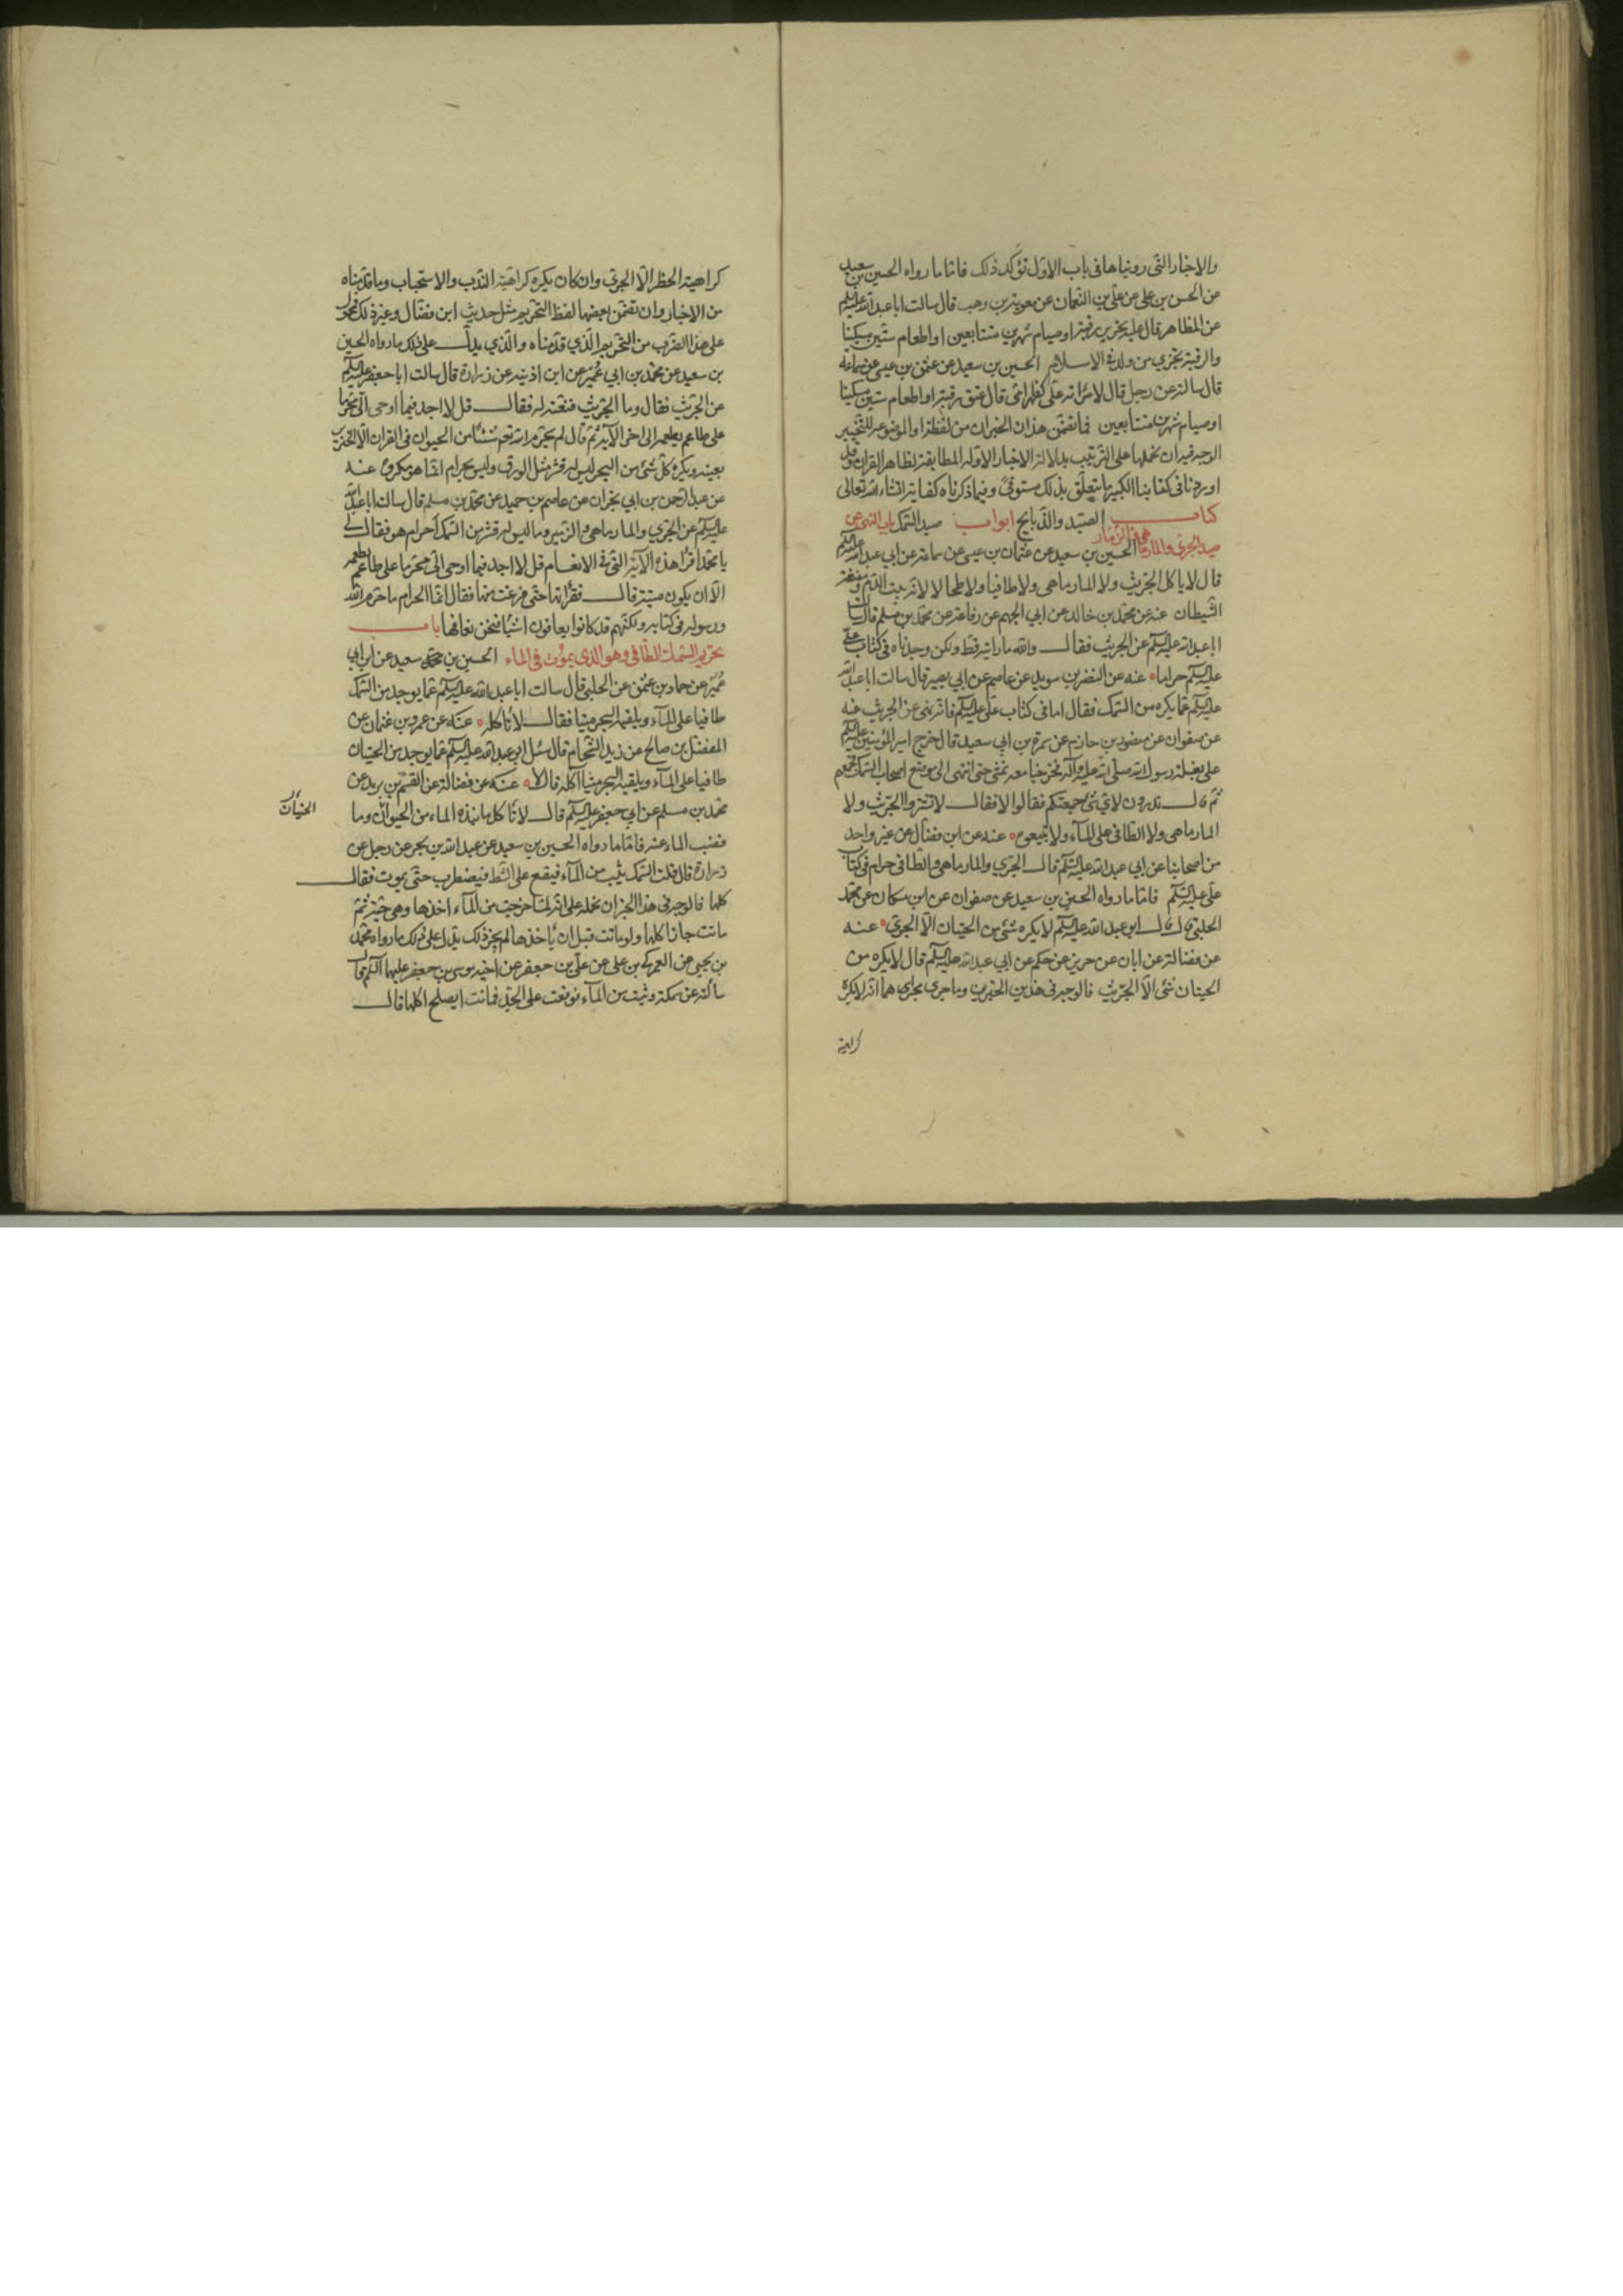 والاخبار التى رويناها فى باب الاول تؤكد ذلك فاما ما رواه الحسين بن سعيد
عن الحسن بن على عن على بن النعمان عن معوية بن وهب قال سالت ابا عبد الله عليه السلم
عن المظاهر قال عليه تحرير رقبة او صيام شهرين متتابعين او اطعام ستين مسكينا
والرقبة يجزى من ولد فى الاسلام الحسين بن سعيد عن عثمن بن عيسى عن سماعه
قال سالته عن رجل قال لامراته على كظهر امى قال عتق رقبة او اطعام ستين مسكينا
او صيام شهرين متتابعين فما تضمن هذان الخبران من لفظة او الموضوعه للتخيير
الوجه فيه ان نحملها على الترتيب بدلالة الاخبار الاوله المطابقة لظاهر القران وقد
اوردنا فى كتابنا الكبير ما يتعلق بذلك مستوفى وفيما ذكرناه كفاية انشاء الله تعالى
كتاب الصيد والذبايح ابواب صيد السمك باب النهى عن
صيد الجرى والمارماهى والزمار الحسين بن سعيد عن عثمان بن عيسى عن سماعة عن ابي عبد الله عليه السلم
قال لا ياكل الجريث ولا المارماهى ولا طافيا ولا طحالا لانه بيت الدم ومضغة
الشيطان عنه عن محمد بن خالد عن ابي الجهم عن رفاعة عن محمد بن مسلم قال سالت
ابا عبد الله عليه السلم عن الجريث فقال والله ما رايته قط ولكن وجدناه فى كتاب على
عليه السلم حراما عنه عن النضر بن سويد عن عاصم عن ابي بصير قال سالت ابا عبد الله
عليه السلم عما يكره من السمك فقال اما فى كتاب على عليه السلم فانه نهى عن الجريث عنه
عن صفوان عن منصور بن حازم عن سمرة بن ابي سعيد قال خرج امير المؤمنين عليه السلم
على بغلة رسول الله صلى الله عليه وآله فخرجنا معه نمشى حتى انتهى الى موضع اصحاب السمك فجمعهم
ثم قال تدرون لاى شئ جمعتكم فقالوا لا فقال لا تشتروا الجريث ولا
المارماهى ولا الطافى على الماء ولا تبيعوه عنه عن ابن فضال عن غير واحد
من اصحابنا عن ابي عبد الله عليه السلم قال الجرى والمارماهى والطافى حرام فى كتاب
على عليه السلم فاما ما رواه الحسين بن سعيد عن صفوان عن ابن مسكان عن محمد
الحلبى قال قال ابو عبد الله عليه السلم لا يكره شئ من الحيتان الا الجرى عنه
عن فضالة عن ابان عن حريز عن حكم عن ابي عبد الله عليه السلم قال لا يكره من
الحيتان شئ الا الجريث فالوجه فى هذين الخبرين وما جرى مجراهما انه لا يكره
كراهية
كراهية الحظر الا الجرى وان كان يكره كراهية الندب والاستحباب وما قدمناه
من الاخبار وان تضمن بعضها لفظ التحريم مثل حديث ابن فضال وغيره ذلك محمول
على هذا الضرب من التحريم الذي قدمناه والذي يدل على ذلك ما رواه الحسين
بن سعيد عن محمد بن ابي عمير عن ابن اذينه عن زرارة قال سالت ابا جعفر عليه السلم
عن الجريث فقال وما الجريث فنعته له فقال قل لا اجد فيما اوحى الى محرما
على طاعم يطعمه الى اخر الآية ثم قال لم يحرم الله تعم شيئا من الحيوان فى القران الا الخنزير
بعينه ويكره كل شئ من البحر ليس له قشر مثل الورق وليس بحرام انما هو مكروه عنه
عن عبد الرحمن بن ابي نجران عن عاصم بن حميد عن محمد بن مسلم قال سالت ابا عبد الله
عليه السلم عن الجرى والمارماهى والزمير وما ليس له قشر من السمك احرام هو فقال لى
يا محمد اقرا هذه الآية التى فى الانعام قل لا اجد فيما اوحى الى محرما على طاعم يطعمه
الا ان يكون ميتة قال فقراتها حتى فرغت منها فقال انما الحرام ما حرم الله
ورسوله فى كتابه ولكنهم قد كانوا يعافون اشياء فنحن نعافها باب
تحريم السمك الطافى وهو الذى يموت فى الماء الحسين بن سعيد عن ابن ابي
عمير عن حماد بن عثمن عن الحلبى قال سالت ابا عبد الله عليه السلم عما يوجد من السمك
طافيا على الماء ويلقيه البحر ميتا فقال لا تاكله عنه عن عمرو بن عثمان عن
المفضل بن صالح عن زيد الشحام قال سئل ابو عبد الله عليه السلم عما يوجد من الحيتان
طافيا على الماء ويلقيه البحر ميتا آكله قال لا عنه عن فضالة عن القسم بن بريد عن
محمد بن مسلم عن ابي جعفر عليه السلم قال لا تاكل ما نبذه الماء من الحيوان وما
الحيتان
نضب الماء عنه فاما ما رواه الحسين بن سعيد عن عبد الله بن بحر عن رجل عن
زرارة قال قلت السمك يثب من الماء فيقع على الشط فيضطرب حتى يموت فقال
كلها فالوجه فى هذا الخبر ان نحمله على انه لما خرجت من الماء اخذها وهى حية ثم
ماتت جاز اكلها ولو ماتت قبل ان ياخذها لم يجز ذلك يدل على ذلك ما رواه محمد
بن يحيى عن العمركى بن على عن على بن جعفر عن اخيه موسى بن جعفر عليهما السلم قال
سالته عن سمكة وثبت من الماء فوقعت على الجد فماتت ايصلح اكلها قال